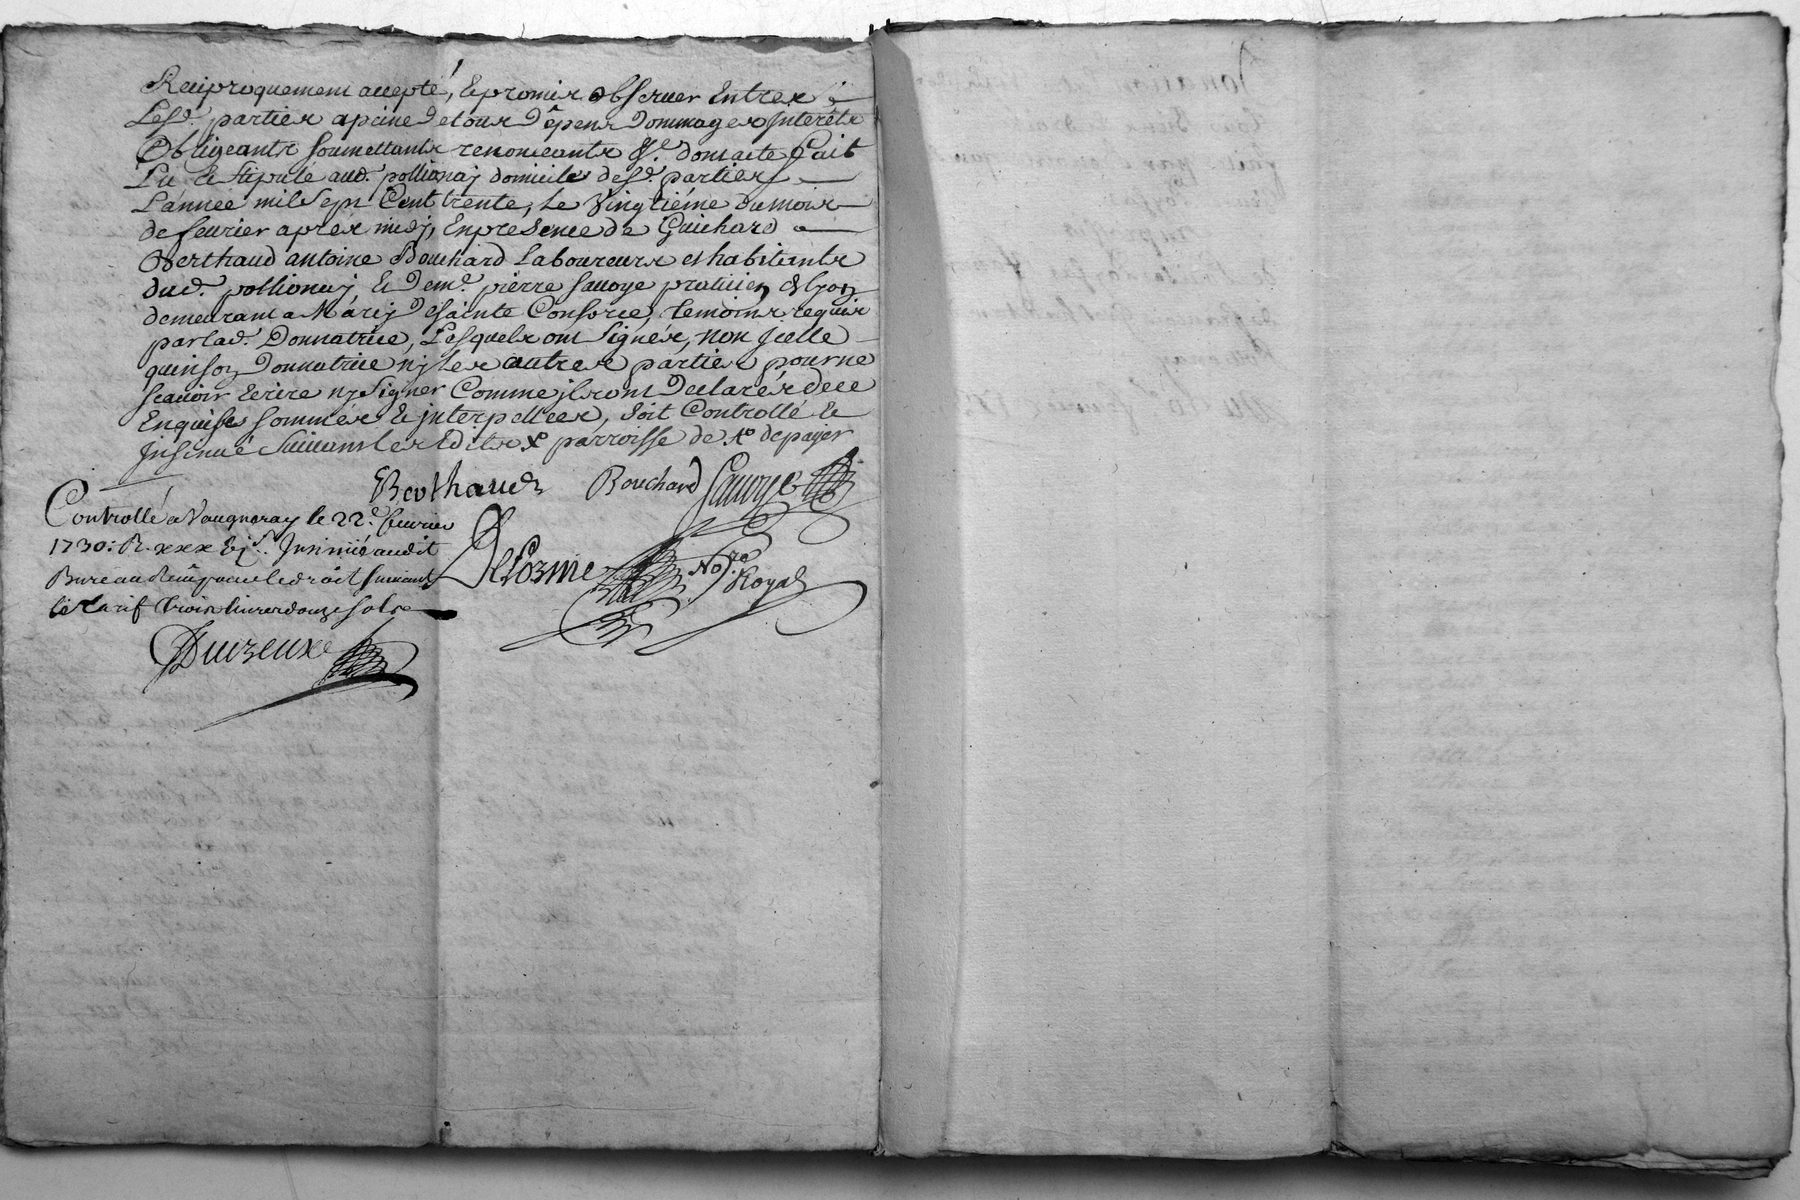 Reciproquement accepté, & promis observer Entres
Lesd. parties a peine de tous dêpens Dommages Interêts
Obligeants soumettants renonceants &c. dont acte fait
Lû & stipulé aud. pollionay domicile desd. parties
L'année mil sept Cent trente, Le Vingtiéme du mois
de feurier aprés midy, En presence de Guichard
Berthaud antoine Bouchard Laboureurs et habitants
dud. pollionay & de me. pierre sauoye praticien
demeurant a Marcy Desainte Consorce, temoins requis
par lad. Donnatrice, Lesquels ont signés, non Jcelle
quinson Donnatrice ny Les autres parties pour ne
scauoir Ecrire ny signer Comme ils ont Declarés de ce
Enquises sommés & interpellées, soit Controllé &
Jnsinué suiuant les Edits parroisse de depayer
Berthaud Bouchard Sauoye
Controllé a Vaugneray le 22e. feurier
1730: R. xxx Jnsinué audit
Bureau Reçû pour le droit suiuant
le tarif trois liures douze sols
Delorme No.re
Royal
Duizeuxe